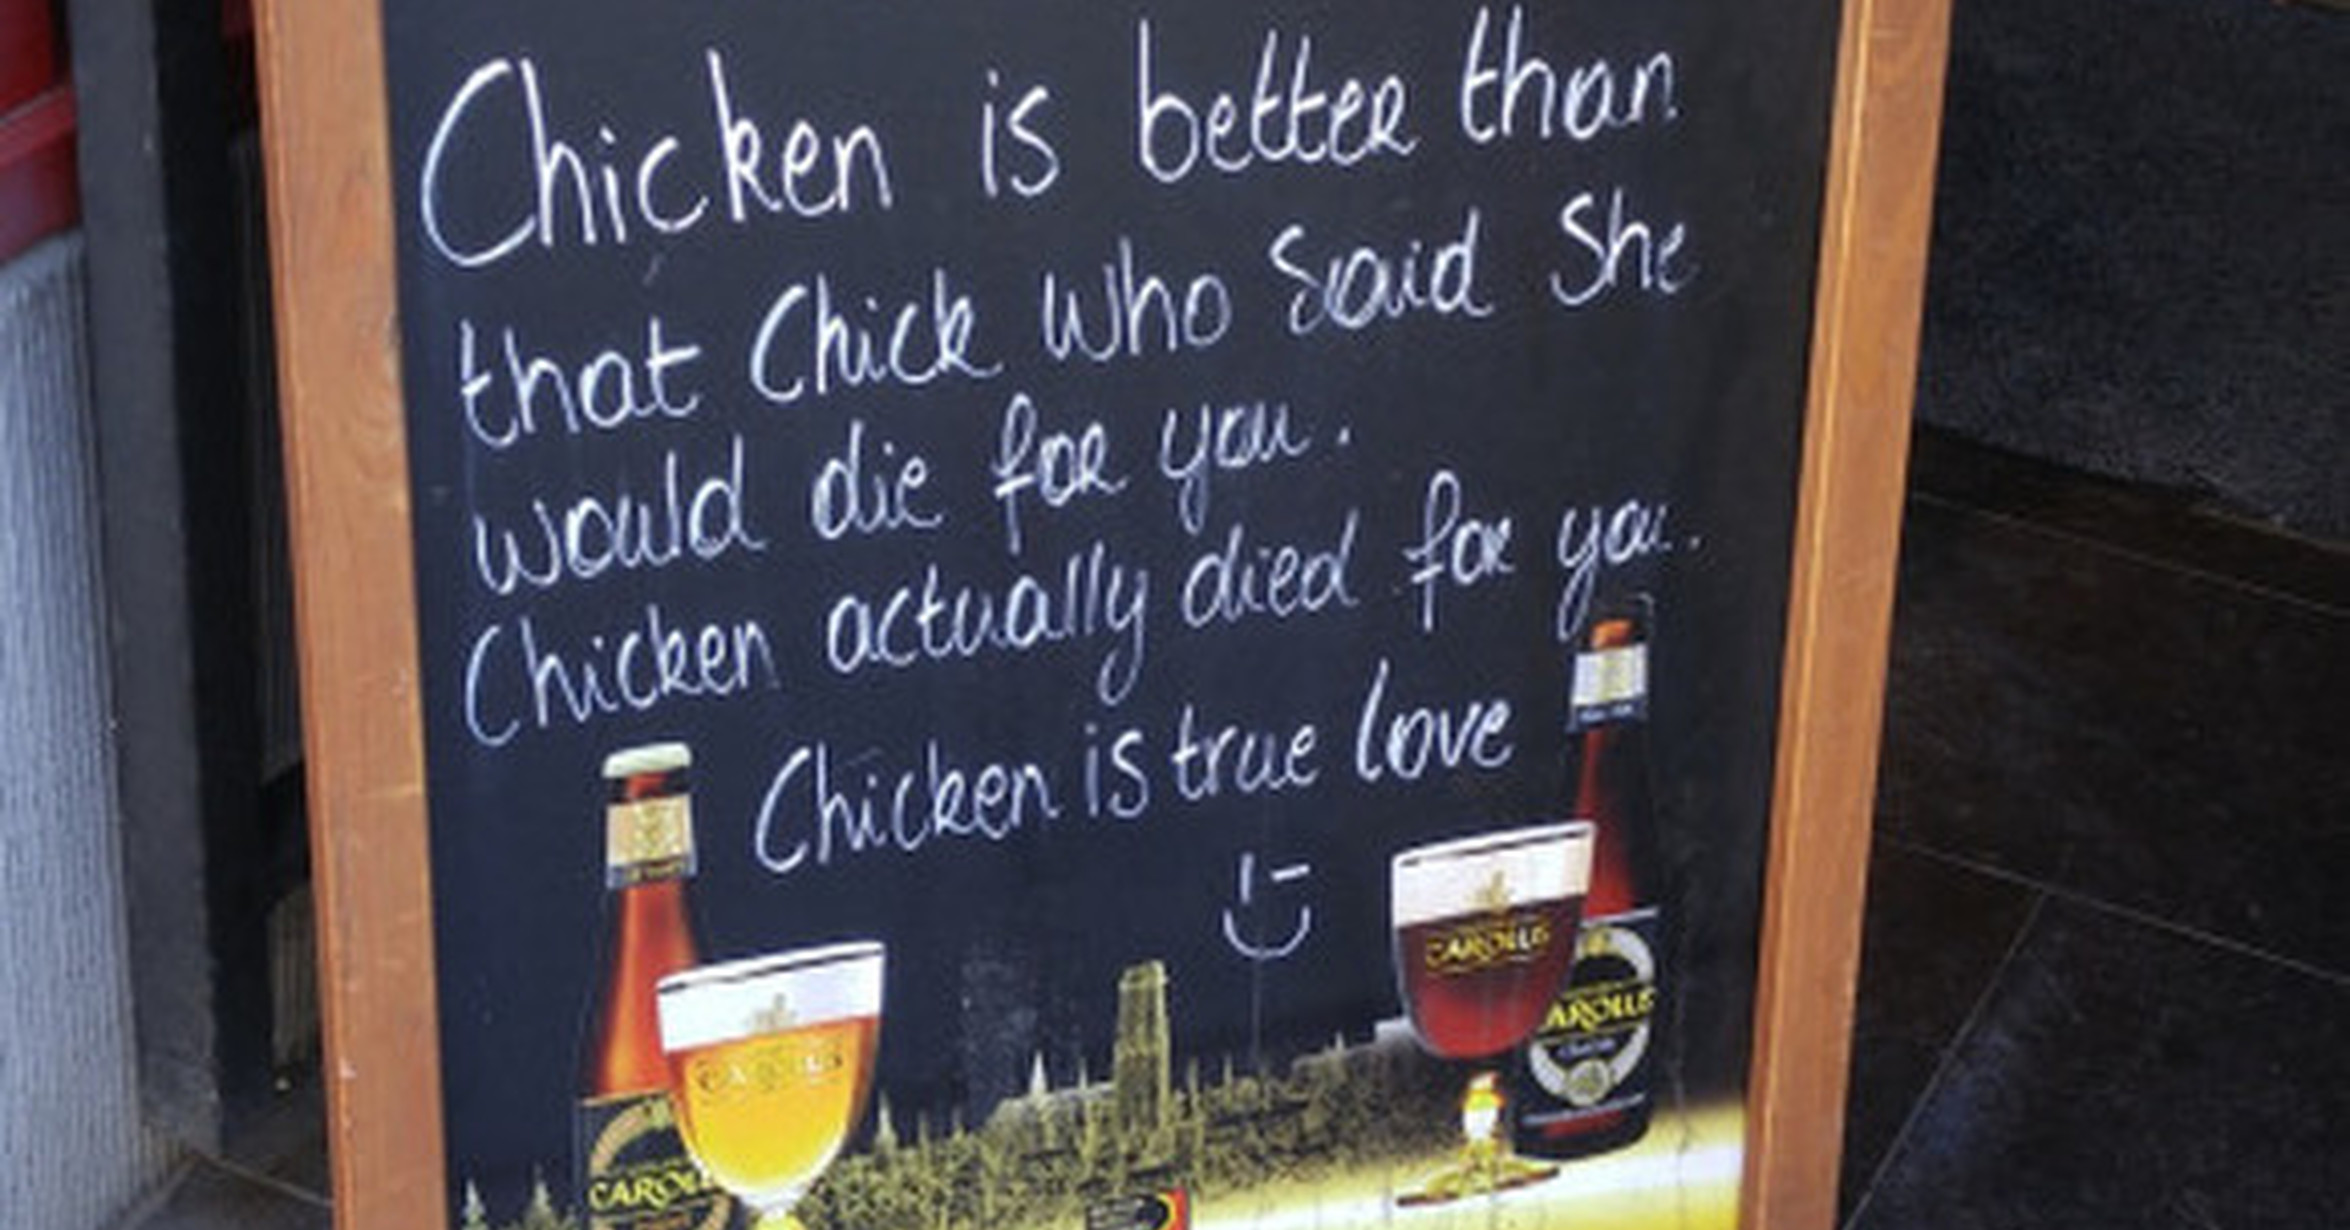 Chicken is better than
that Chick who said She
would die for you.
Chicken actually died for you.
Chicken is true love
CAROLUS
CAROLUS